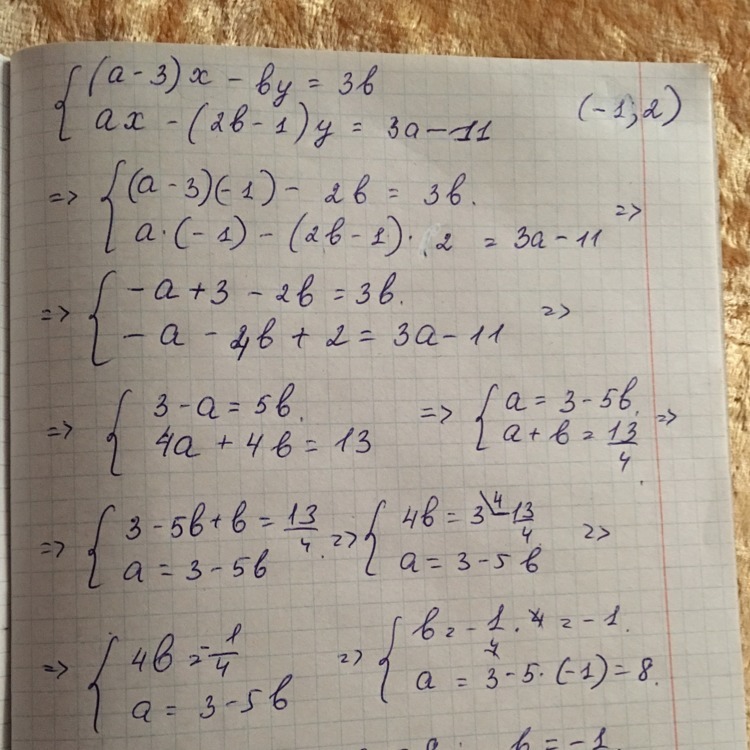 (a - 3)x - by = 3b
ax - (2b - 1)y = 3a - 11
(-1; 2)
=> (a - 3)(-1) - 2b = 3b.
a · (-1) - (2b - 1) · 2 = 3a - 11 =>
=> -a + 3 - 2b = 3b.
-a - 4b + 2 = 3a - 11 =>
=> 3 - a = 5b.
4a + 4b = 13
=> a = 3 - 5b.
a + b = 13/4. =>
=> 3 - 5b + b = 13/4.
a = 3 - 5b
=> 4b = 3\4 - 13/4.
a = 3 - 5b =>
=> 4b = -1/4
a = 3 - 5b
=> b = -1/4 · 4 = -1.
a = 3 - 5 · (-1) = 8.
b = -1.